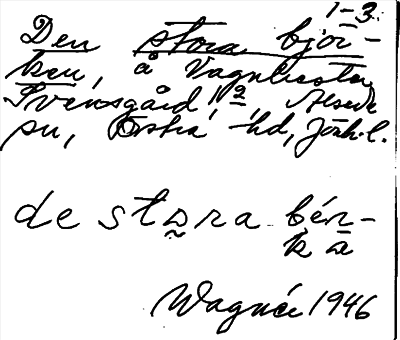 1-3.
Den stora björ-
ken, å Vagnhester
Svensgård 1 2, Alseda
sn, Östra hd, Jönk. l.
de stɒra bér-
k a
Wagnér 1946